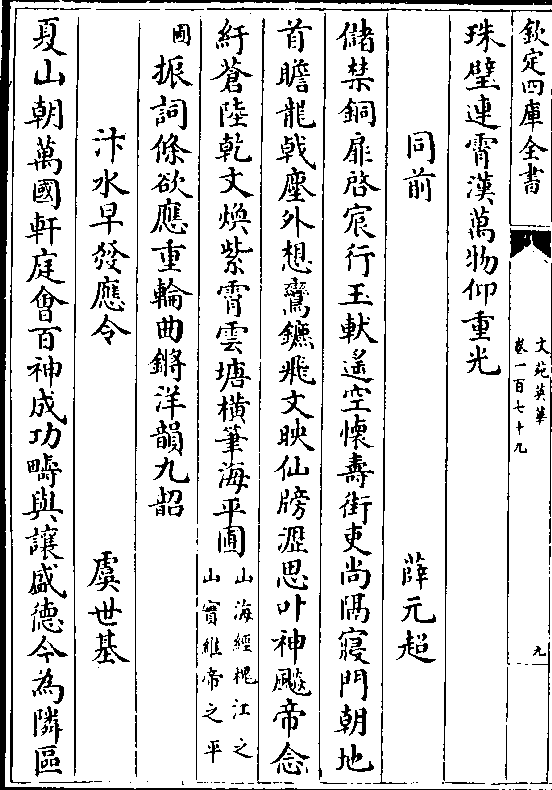 欽定四庫全書
文苑英華
卷一百七十九
九
珠璧連霄漢萬物仰重光
同前
薛元超
儲禁銅扉啓宸行玉軑遙空懷壽街吏尚隔寢門朝地
首瞻龍戟塵外想鸞鑣飛文映仙牓瀝思叶神飇帝念
紆蒼陸乾文煥紫霄雲塘橫筆海平圃山海經槐江之
山實維帝之平
圃振詞條欲應重輪曲鏘洋韻九韶
汴水早發應令
虞世基
夏山朝萬國軒庭會百神成功疇與讓盛德今為隣區